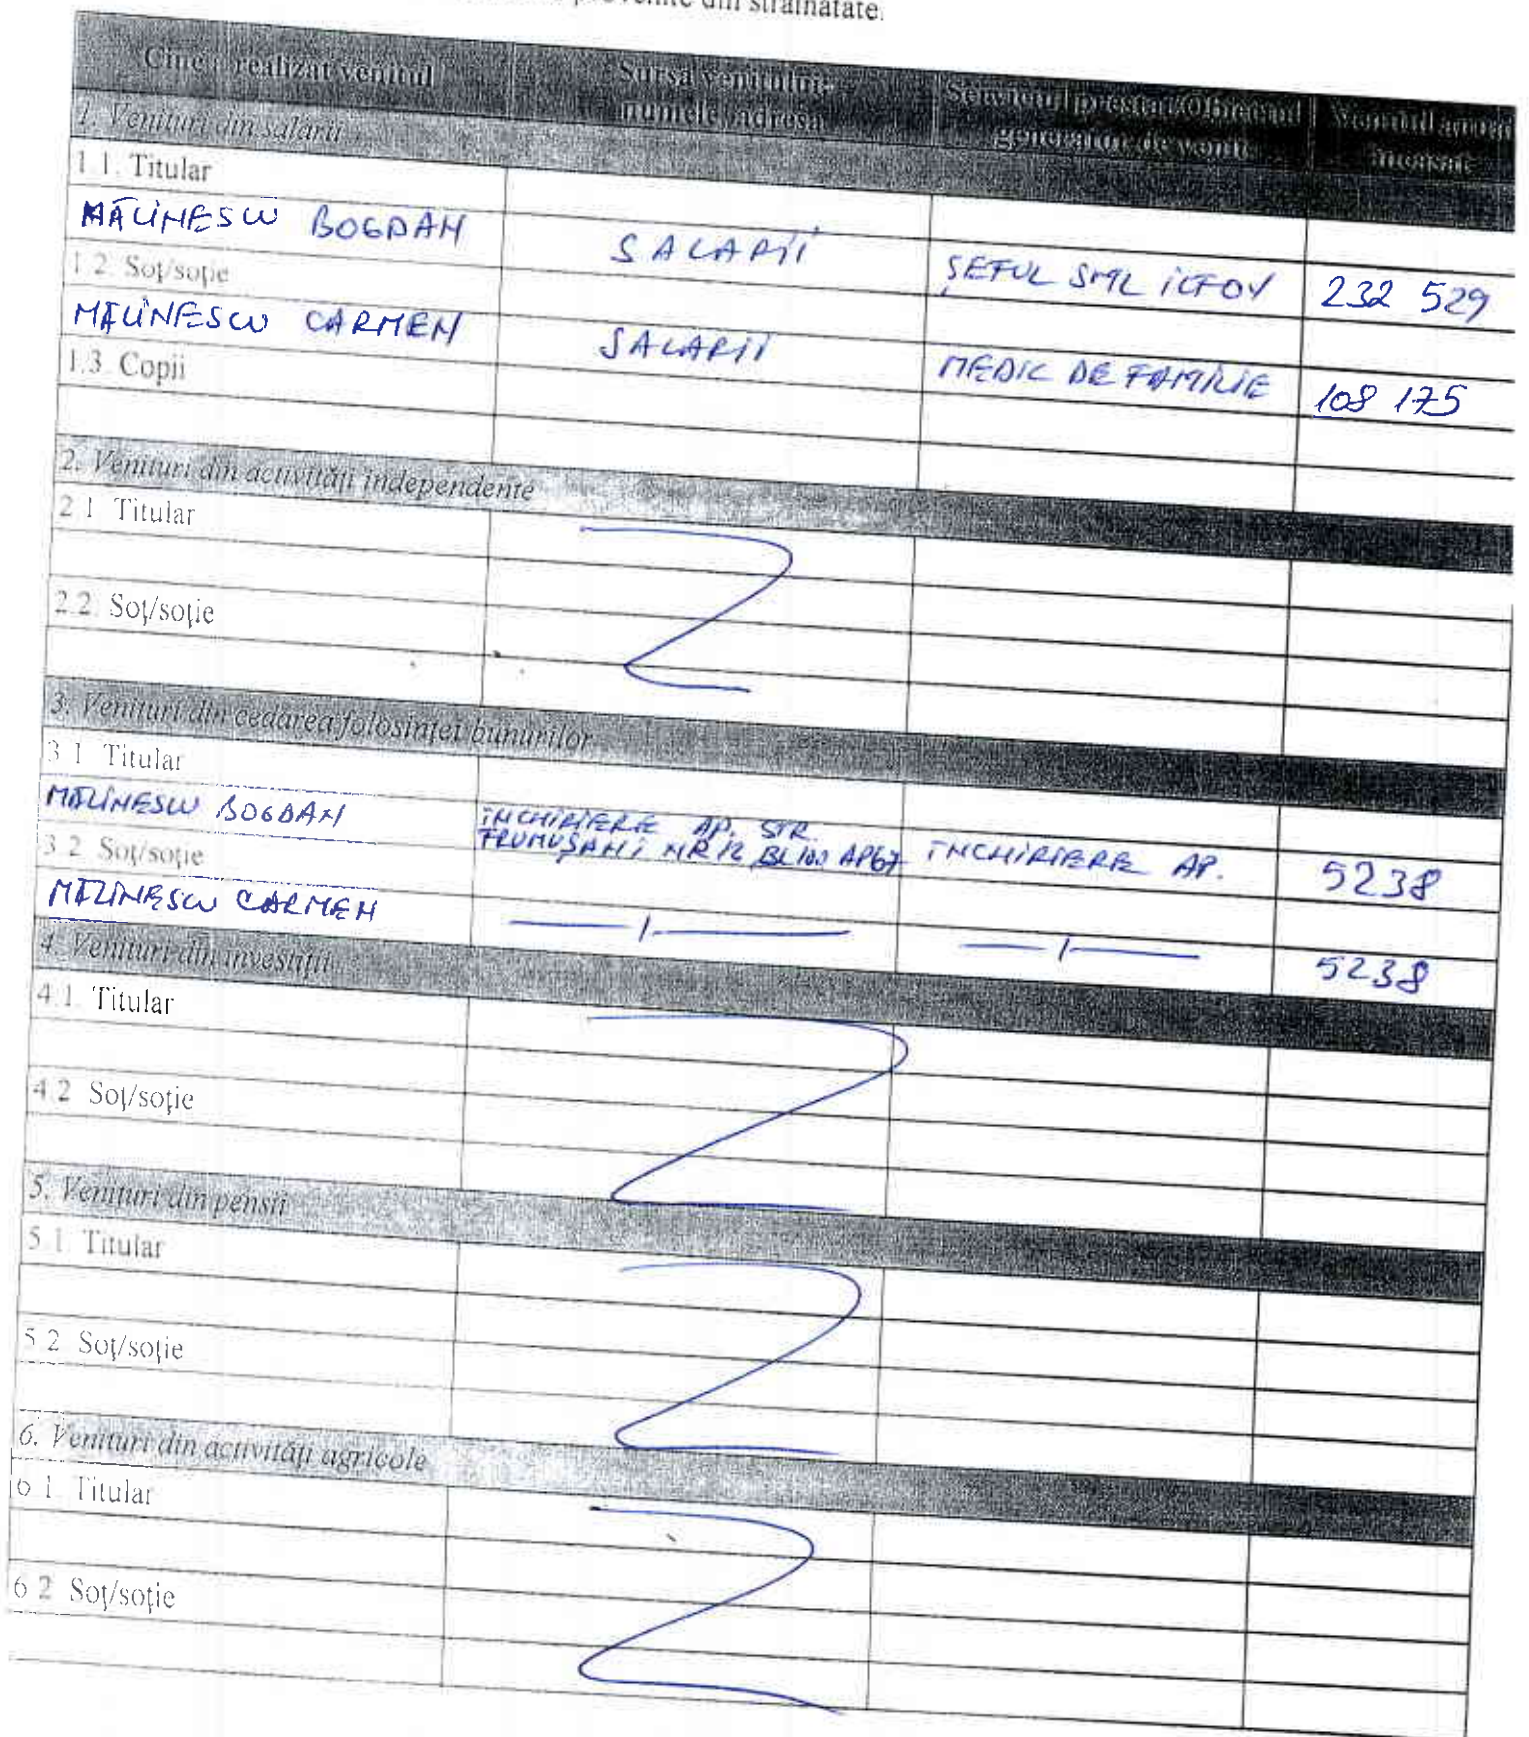 provenite din străinătate.
Cine a realizat venitul
Sursa venitului:
numele, adresa
Serviciul prestat/Obiectul
generator de venit
Venitul anual
încasat
1. Venituri din salarii
1.1. Titular
MĂLINESCU BOGDAN SALARII ŞEFUL SML ILFOV 232 529
1.2. Soţ/soţie
MĂLINESCU CARMEN SALARII MEDIC DE FAMILIE 108 175
1.3. Copii
2. Venituri din activităţi independente
2.1. Titular
2.2. Soţ/soţie
3. Venituri din cedarea folosinţei bunurilor
3.1. Titular
MĂLINESCU BOGDAN ÎNCHIRIERE AP. STR.
FRUMUŞANI NR 12 BL 100 AP67 ÎNCHIRIERE AP. 5238
3.2. Soţ/soţie
MĂLINESCU CARMEN —1— —1— 5238
4. Venituri din investiţii
4.1. Titular
4.2. Soţ/soţie
5. Venituri din pensii
5.1. Titular
5.2. Soţ/soţie
6. Venituri din activităţi agricole
6.1. Titular
6.2. Soţ/soţie